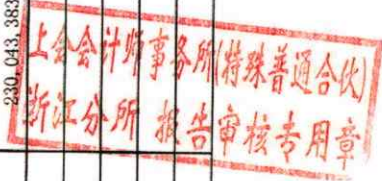 230,043,383
上会会计师事务所(特殊普通合伙)
浙江分所 报告审核专用章